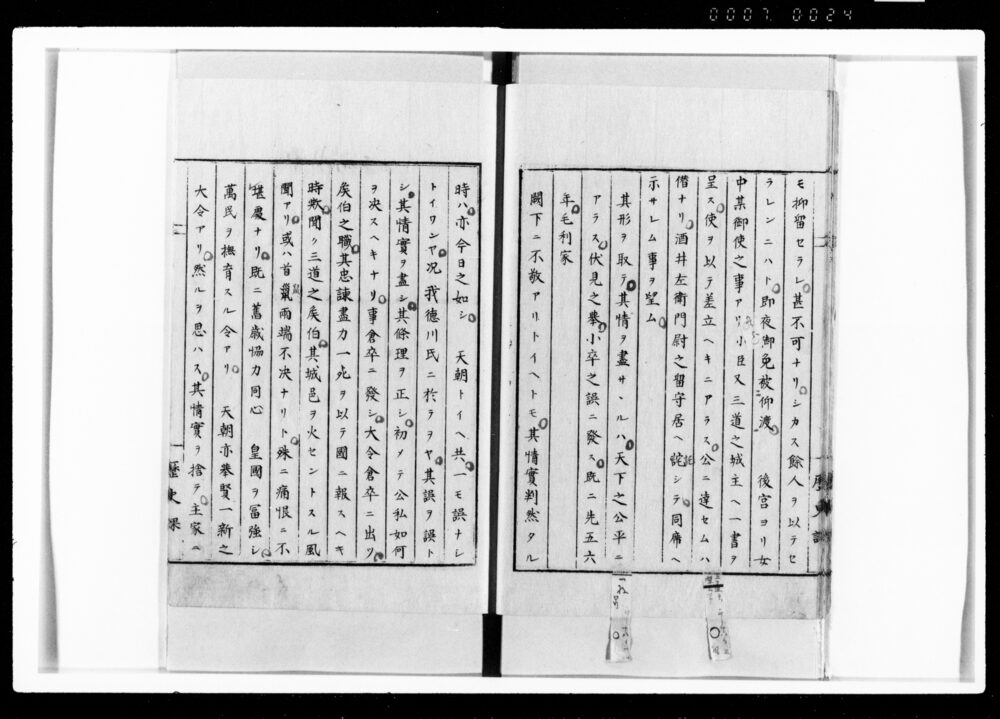 0007 0024
モ抑留セラレ甚不可ナリシカス餘人ヲ以テセ
ラレンニハト即夜御免被仰渡 後宮ヨリ女
中某御使之事アリ小臣又三道之城主ヘ一書ヲ
呈ス使ヲ以テ差立ヘキニアラス公ニ達セムハ
僭ナリ酒井左衛門尉之留守居ヘ詫シテ同席ヘ
示サレム事ヲ望ム
其形ヲ取テ其情ヲ盡サヽルハ天下之公平ニ
アラス伏見之擧小卒之誤ニ發ス既ニ先五六
年毛利家
闕下ニ不敬アリトイヘトモ其情實判然タル
歴史課
時ハ亦今日之如シ 天朝トイヘ共一モ誤ナシ
トイワンヤ况我徳川氏ニ於テヲヤ其誤ヲ誤ト
シ其情實ヲ盡シ其條理ヲ正シ初メテ公私如何
ヲ决スヘキナリ事倉卒ニ發シ大令倉卒ニ出ツ
矦伯之職其忠諌盡力一死ヲ以テ國ニ報スヘキ
時歟聞ク三道之矦伯其城邑ヲ火セントスル風
聞アリ或ハ首鼠両端不决ナリト殊ニ痛恨ニ不
堪慶ナリ既ニ舊歳恊力同心 皇國ヲ冨強シ
萬民ヲ撫育スル令アリ 天朝亦擧賢一新之
大令アリ然ルヲ思ハス其情實ヲ捨テ主家ニ
歴史課